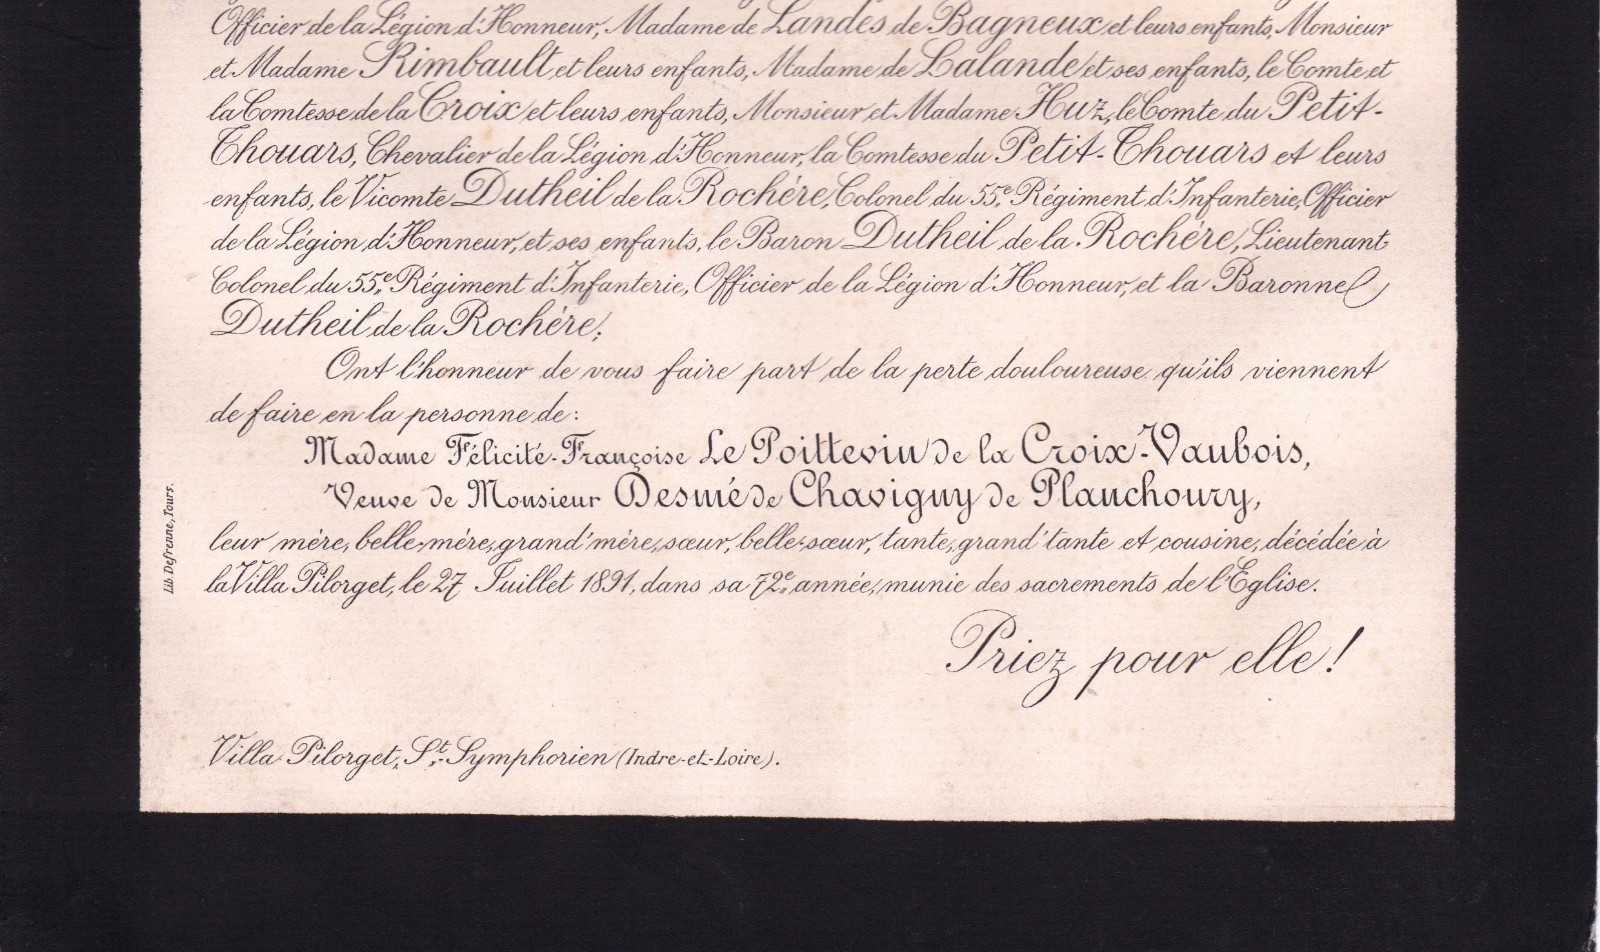 Officier de la Légion d'Honneur, Madame de Landès de Bagneux et leurs enfants, Monsieur
et Madame Rimbault et leurs enfants, Madame de Lalande et ses enfants, le Comte et
la Comtesse de la Croix et leurs enfants, Monsieur et Madame Huz, le Comte du Petit-
Thouars, Chevalier de la Légion d'Honneur, la Comtesse du Petit-Thouars et leurs
enfants, le Vicomte Dutheil de la Rochère, Colonel du 55e Régiment d'Infanterie, Officier
de la Légion d'Honneur, et ses enfants, le Baron Dutheil de la Rochère, Lieutenant
Colonel du 55e Régiment d'Infanterie, Officier de la Légion d'Honneur, et la Baronne
Dutheil de la Rochère;
Ont l'honneur de vous faire part de la perte douloureuse qu'ils viennent
de faire en la personne de:
Madame Félicité-Françoise Le Poittevin de la Croix-Vaubois,
Veuve de Monsieur Desmé de Chavigny de Planchoury,
leur mère, belle-mère, grand'mère, sœur, belle-sœur, tante, grand'tante et cousine, décédée à
la Villa Pilorget, le 27 Juillet 1891, dans sa 72e année, munie des sacrements de l'Eglise.
Priez pour elle!
Villa Pilorget, St-Symphorien (Indre-et-Loire).
Lib. Defrenne, Tours.